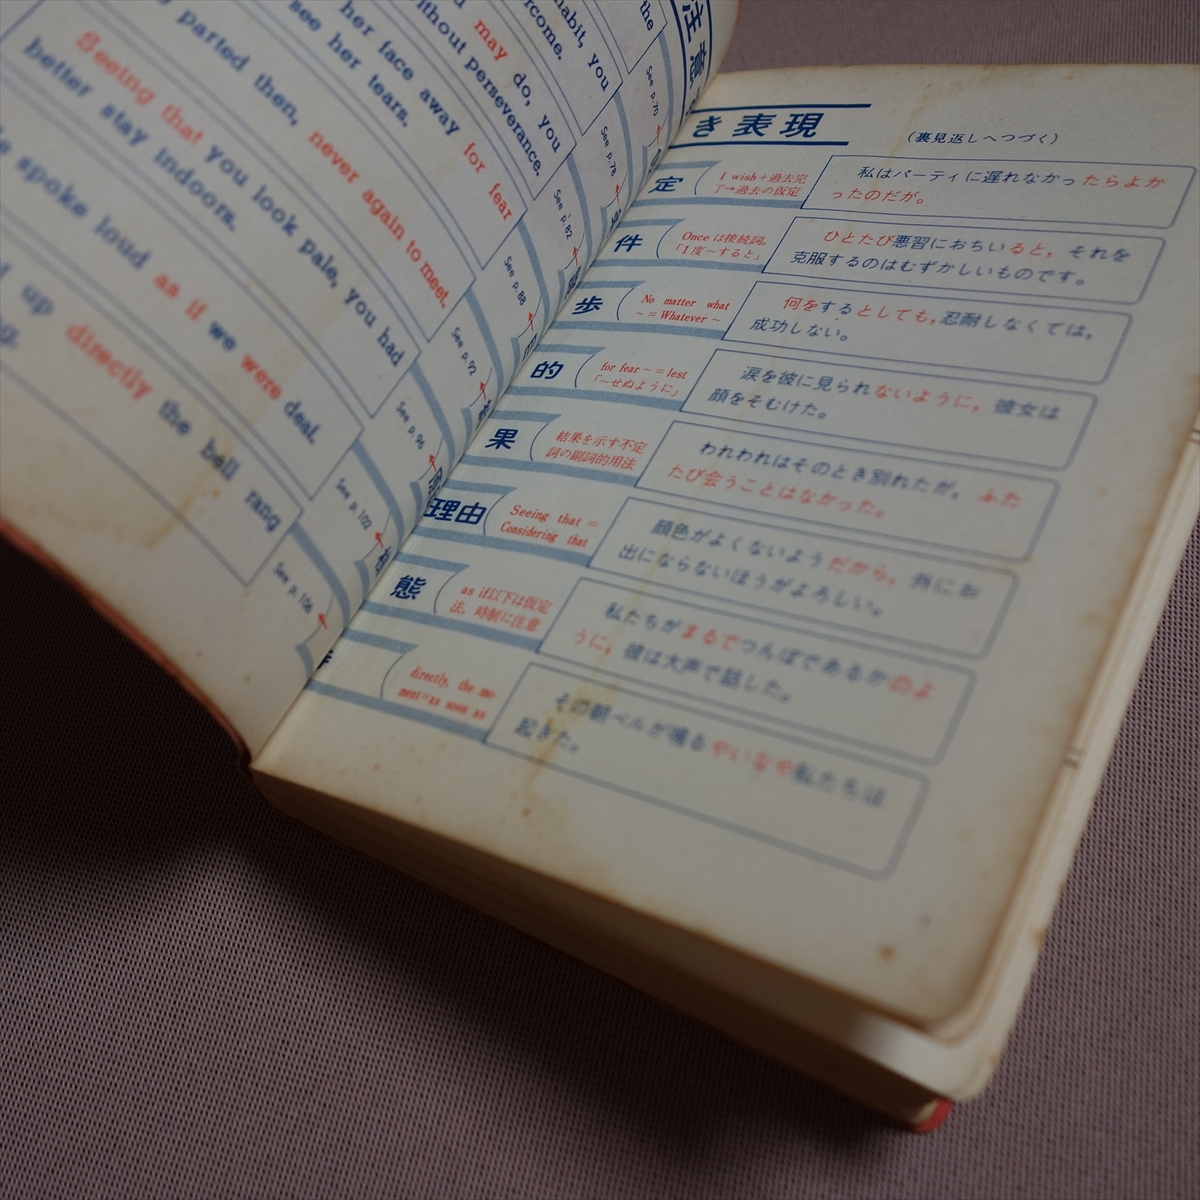 the
habit, you
ercome.
may do, you
ithout perseverance.
her face away for fear
see her tears.
parted then, never again to meet.
Seeing that you look pale, you had
better stay indoors.
spoke loud as if we were deaf.
up directly the bell rang
See p.70
See p.78
See p.82
See p.88
See p.92
See p.96
See p.102
See p.106
注意
き表現
(裏見返しへつづく)
定
I wish+過去完
了→過去の仮定
私はパーティに遅れなかったらよか
ったのだが。
件
Once は接続詞。
「1度~すると」
ひとたび悪習におちいると，それを
克服するのはむずかしいものです。
歩
No matter what
~=Whatever ~
何をするとしても，忍耐しなくては，
成功しない。
的
for fear ~=lest
「~せぬように」
涙を彼に見られないように，彼女は
顔をそむけた。
果
結果を示す不定
詞の副詞的用法
われわれはそのとき別れたが，ふた
たび会うことはなかった。
理由
Seeing that =
Considering that
顔色がよくないようだから，外にお
出にならないほうがよろしい。
態
as if以下は仮定
法。時制に注意
私たちがまるでつんぼであるかのよ
うに，彼は大声で話した。
directly, the mo-
ment=as soon as
その朝ベルが鳴るやいなや私たちは
起きた。